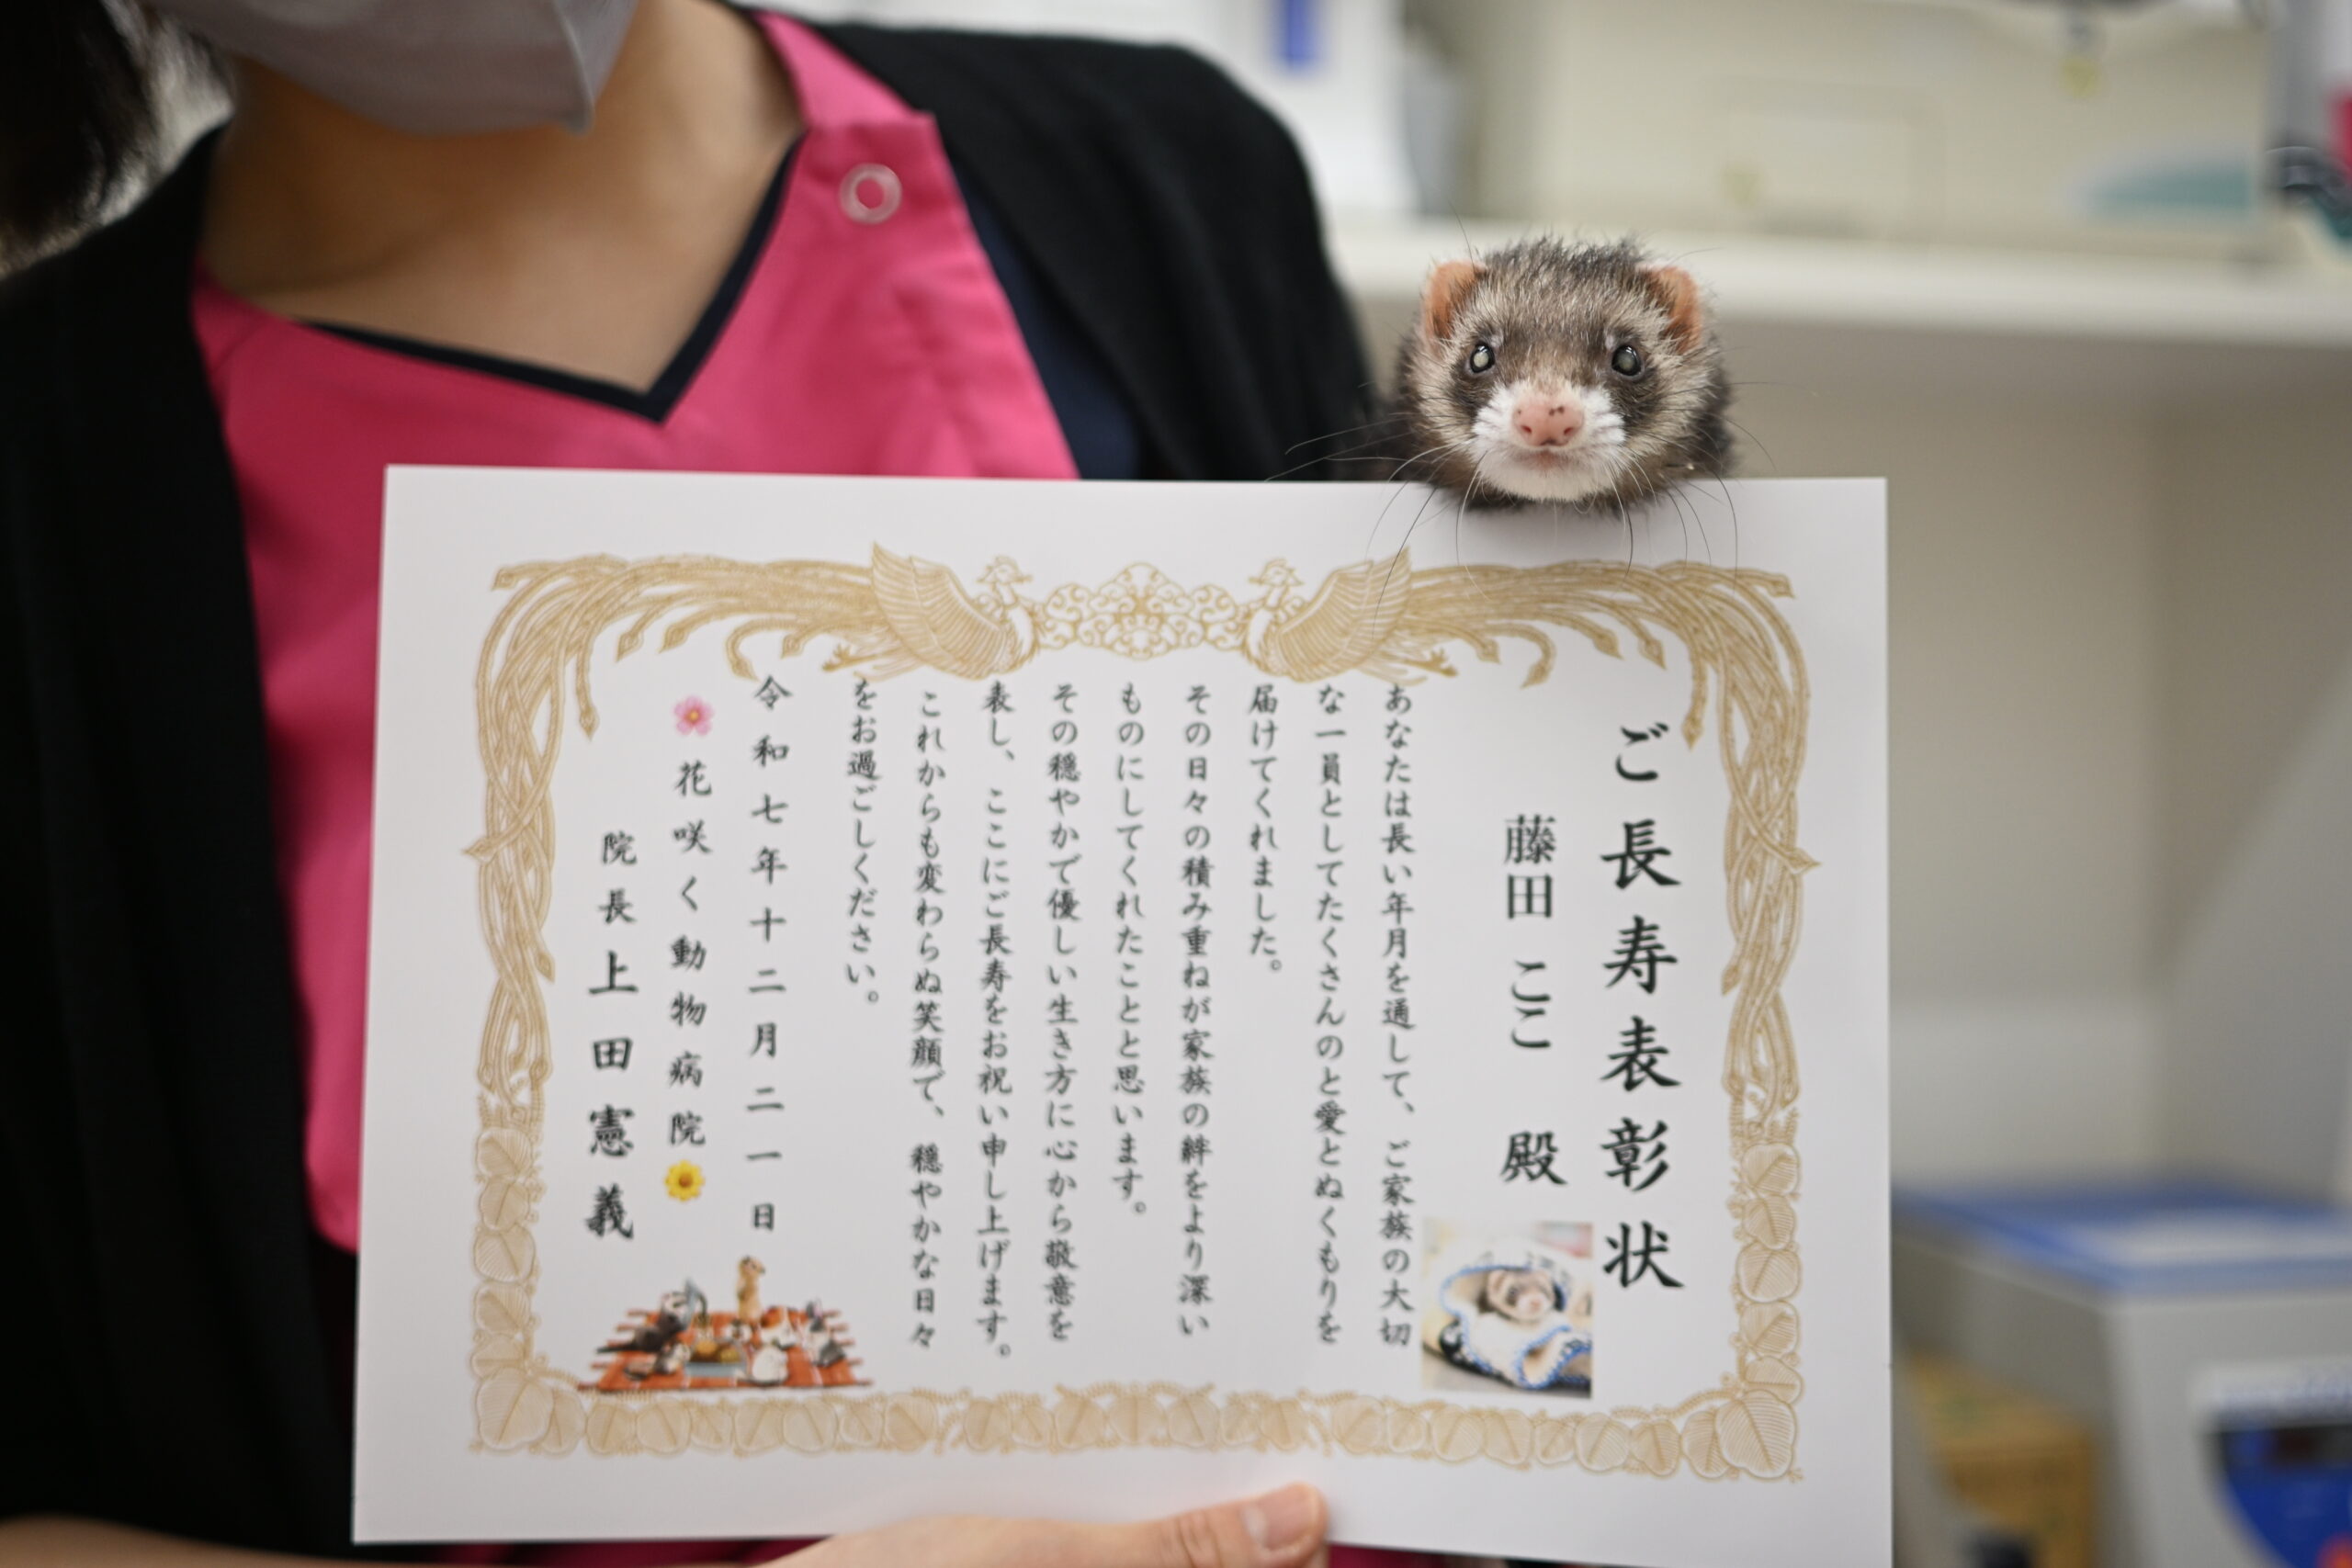 ご長寿表彰状
藤田 ここ 殿
あなたは長い年月を通して、ご家族の大切
な一員としてたくさんのと愛とぬくもりを
届けてくれました。
その日々の積み重ねが家族の絆をより深い
ものにしてくれたことと思います。
その穏やかで優しい生き方に心から敬意を
表し、ここにご長寿をお祝い申し上げます。
これからも変わらぬ笑顔で、穏やかな日々
をお過ごしください。
令和七年十二月二一日
🌸花咲く動物病院🌼
院長上田憲義